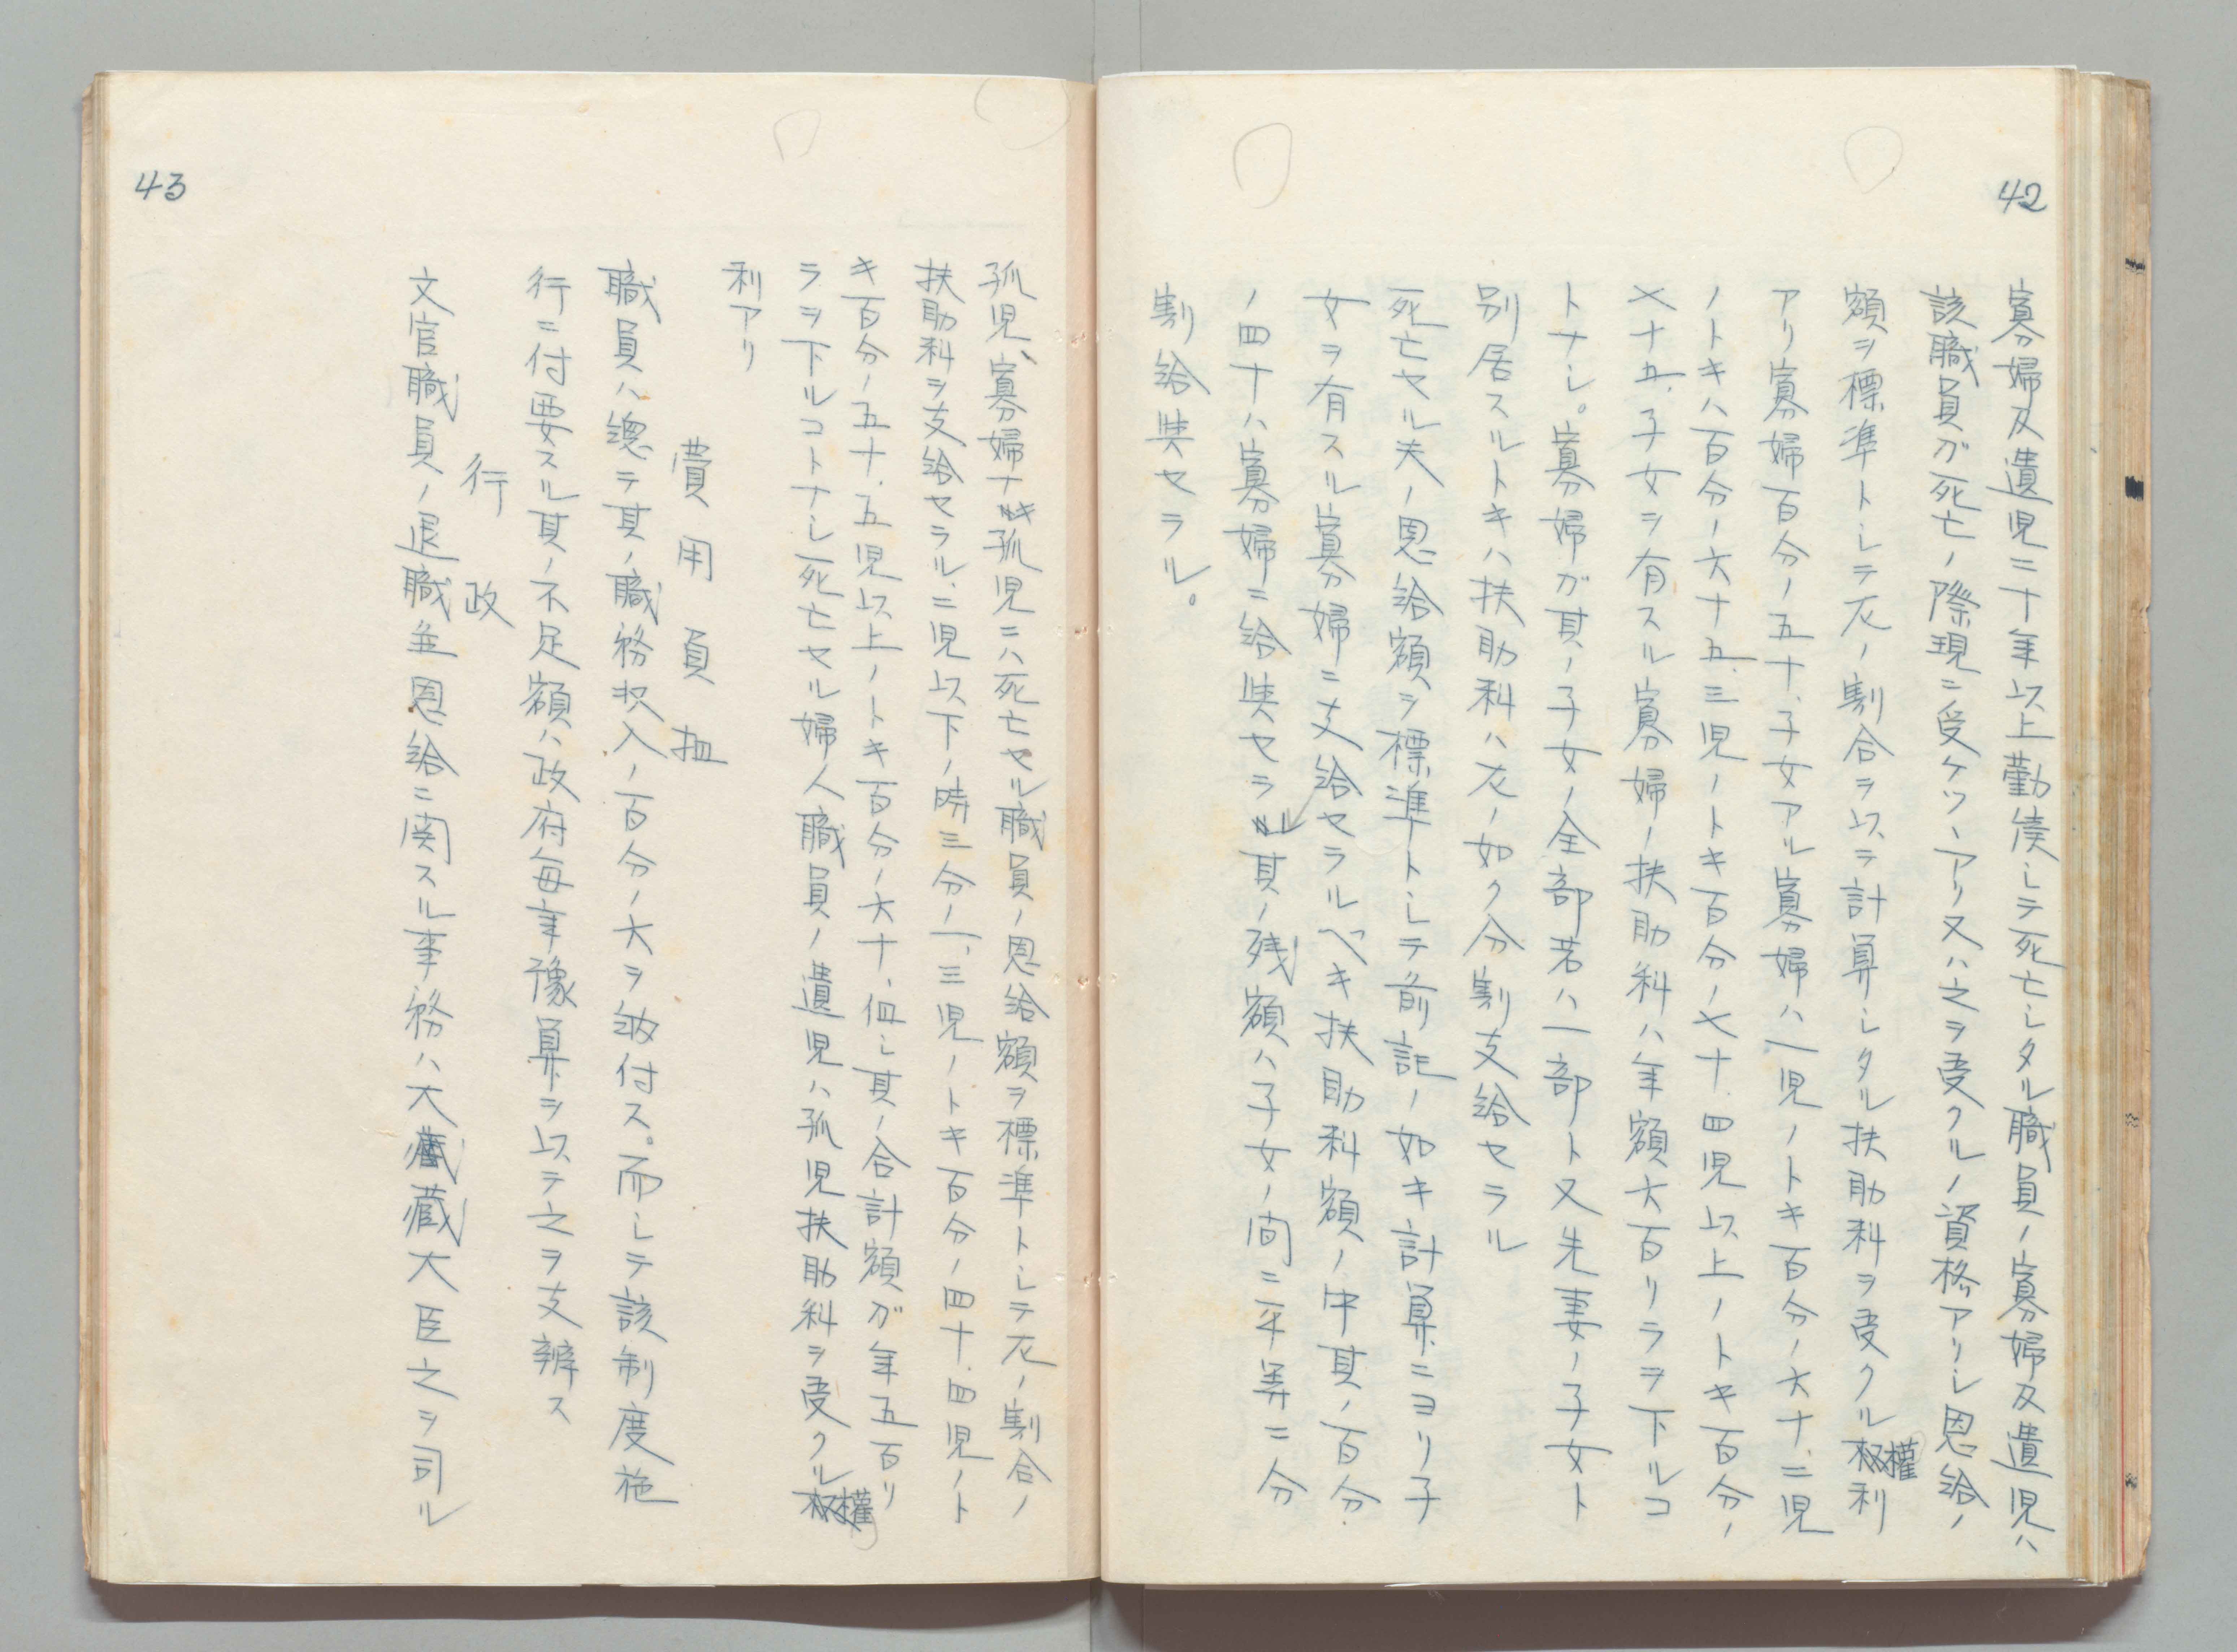 42
寡婦及遺児二十年以上勤続シテ死亡シタル職員ノ寡婦及遺児ハ
該職員ガ死亡ノ際現ニ受ケツヽアリ又ハ之ヲ受クルノ資格アリシ恩給ノ
額ヲ標準トシテ左ノ割合ヲ以テ計算シタル扶助料ヲ受クル權利
アリ寡婦百分ノ五十、子女アル寡婦ハ一児ノトキ百分ノ六十、二児
ノトキハ百分ノ六十五、三児ノトキ百分ノ七十、四児以上ノトキ百分ノ
七十五、子女ヲ有スル寡婦ノ扶助料ハ年額六百リラヲ下ルコ
トナシ。寡婦ガ其ノ子女ノ全部若ハ一部ト又先妻ノ子女ト
別居スルトキハ扶助料ハ左ノ如ク分割支給セラル
死亡セル夫ノ恩給額ヲ標準トシテ前記ノ如キ計算ニヨリ子
女ヲ有スル寡婦ニ支給セラルベキ扶助料額ノ中其ノ百分
ノ四十ハ寡婦ニ給與セラレ其ノ残額ハ子女ノ間ニ平等ニ分
割給與セラル。
43
孤児、寡婦ナキ孤児ニハ死亡セル職員ノ恩給額ヲ標準トシテ左ノ割合ノ
扶助料ヲ支給セラル、二児以下ノ時三分ノ一、三児ノトキ百分ノ四十、四児ノト
キ百分ノ五十、五児以上ノトキ百分ノ六十、但シ其ノ合計額ガ年五百リ
ラヲ下ルコトナシ死亡セル婦人職員ノ遺児ハ孤児扶助料ヲ受クル權
利アリ
費用員担
職員ハ総テ其ノ職務収入ノ百分ノ六ヲ納付ス。而シテ該制度施
行ニ付要スル其ノ不足額ハ政府毎年豫算ヲ以テ之ヲ支辨ス
行政
文官職員ノ退職並恩給ニ関スル事務ハ大藏大臣之ヲ司ル